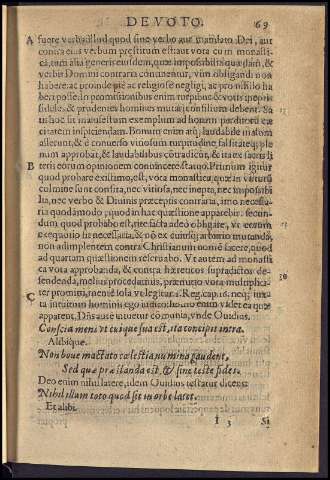 DE VOTO. 69
A fuere verbū illud quod sine verbo aut mandato Dei, aut
contra eius verbum præstitum est aut vota cum monasti
ca, tum alia generis eiusdem, quæ impossibilia quædam, &
verbis Domini contraria continentur, vim obligandi non
habere: ac proinde piè ac religiosè negligi, ac pro nihilo ha
beri posse. In promissionibus enim turpibus & votis impiis
fidelē, & prudentem hominem mutari consilium debent. Sa
tis hoc sit manifestum exemplum ad hominū perditorū cæ
citatem inspiciendam. Bonum enim atq; laudabile malum
asserunt, & è conuerso vitiosum turpitudinis, falsitateq; ple
num approbāt, & laudabilibus contradicūt, & ita ex sacris li
B teris eorum opinionem conuincere statuo. Primum igitur
quod probare existimo, est, vota monastica, quæ in virtutū
culmine sunt consita, nec vitiosa, nec inepta, nec impossibi
lia, nec verbo & Diuinis præceptis contraria, imo necessa-
ria quodāmodo; quod in hac quæstione apparebit. secun-
dum quod probabo est, rite facta adeò obligare, vt eorum
exequutio sit necessaria, & nō ex cuiusq; arbitrio mutando,
non adimplentem contra Christianum nomē facere, quod
ad quartam quæstionem reseruabo. Vt autem ad monasti
ca vota approbanda, & contra hæreticos supradictos de-
fendenda, melius procedamus, præmitto vota multiplica-
C ter promitti, me nē sola velegitur. 1. Reg. cap. 16. neq; iux-
ta intuitum hominis ego iudico: homo enim videt ea quæ
apparent, Dñs autē intuetur cor. Omnia, vnde Ouidius.
Conscia mens vt cuique sua est, ita concipit intra.
Alibique.
Non boue mactato cælestia numina gaudent,
Sed quæ præstanda est, & sine teste fides.
Deo enim nihil latere, idem Ouidius testatur dicens:
Nihil illum toto quod sit in orbe latet.
Et alibi.
I 3 Si